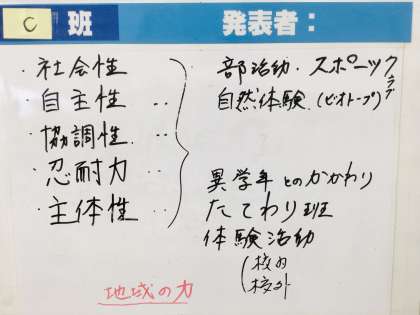 C 班 発表者：
・社会性
・自主性 ‥
・協調性 ‥
・忍耐力 ‥
・主体性 ‥
部活動・スポーツクラブ
自然体験（ビオトープ）
異学年とのかかわり
たてわり班
体験活動
（校内
校外
地域の力